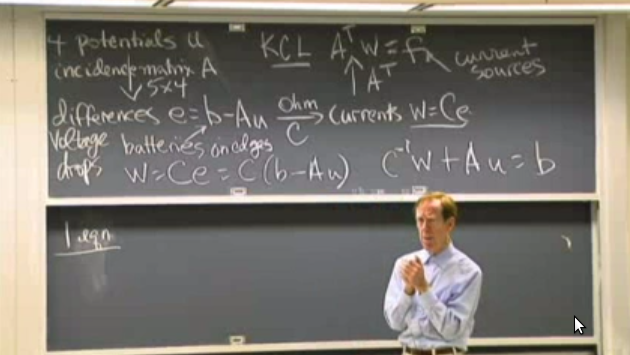 4 potentials u
incidence matrix A
↓ 5x4
differences e = b - Au Ohm → C currents w = Ce
voltage drops
batteries on edges
w = Ce = C(b - Au)
KCL AᵀW = f
↑ Aᵀ
current sources
C⁻¹w + Au = b
1 eqn